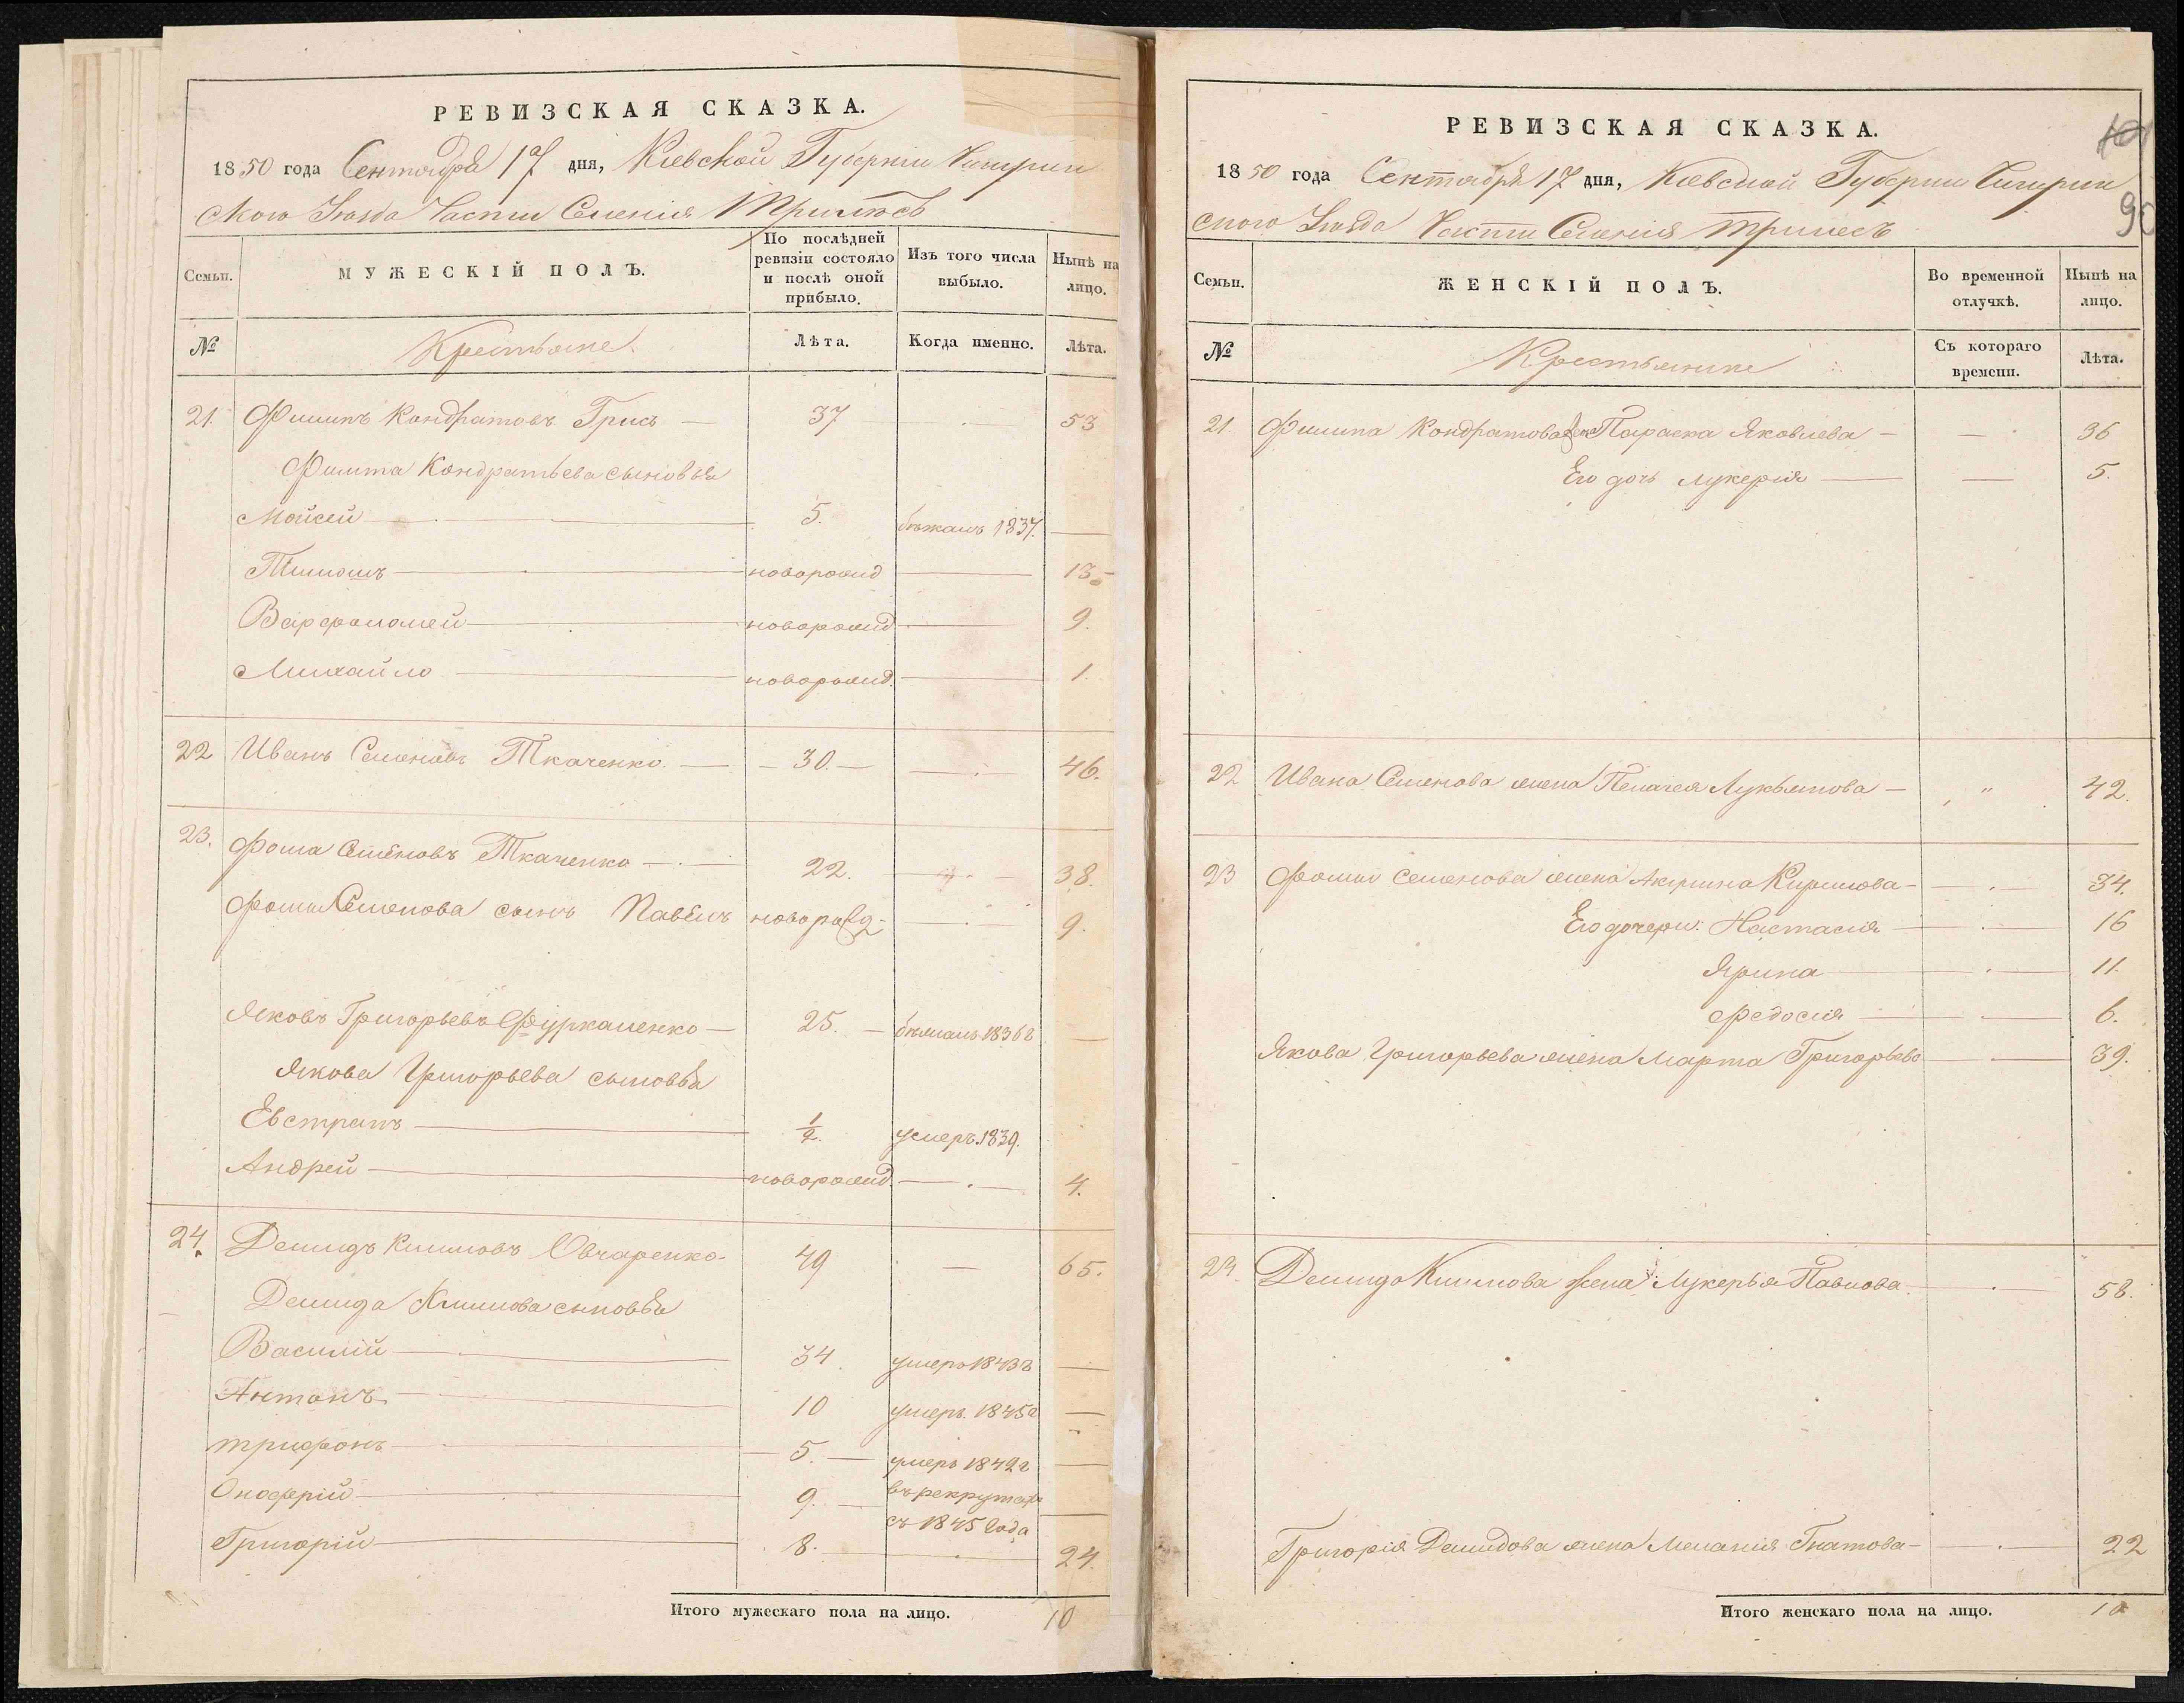 РЕВИЗСКАЯ СКАЗКА.
1850 года Сентября 17 дня, Кіевской Губерніи Чигирин
ского Уезда Части Селенія Трилѣсъ
Семьи.
МУЖЕСКІЙ ПОЛЪ.
По послѣдней ревизіи состояло и послѣ оной прибыло.
Изъ того числа выбыло.
Нынѣ на лицо.
№
Крестьяне.
Лѣта.
Когда именно.
Лѣта.
21. Филипъ Кондратовъ Грись — 37 — 53
Филипа Кондратьева сыновья
Мойсей — 5. бѣжалъ 1837. —
Тимошъ — новорожд — 13
Варфоломей — новорожд — 9.
Михайло — новорожд. — 1.
22 Иванъ Семеновъ Ткаченко. — 30. — 46.
23. Фома Семеновъ Ткаченко — 22. — 38.
Фомы Семенова сынъ Павелъ новорожд — 9.
Яковъ Григорьевъ — 25. — бѣжалъ 1836 г —
Якова Григорьева сыновья
Евстратъ — ½. умеръ 1839.
Андрей — новорожд. — 4.
24. Демидъ Климовъ Овчаренко 49 — 65.
Демида Климова сыновья
Василій — 34. умеръ 1843 г —
Антонъ — 10 умеръ. 1845 г —
Трифонъ — 5. — умеръ 1842 г —
Онофрій — 9. — въ рекрутахъ съ 1845 года —
Григорій — 8. — 24.
Итого мужескаго пола на лицо. 10
РЕВИЗСКАЯ СКАЗКА.
90
1850 года Сентября 17 дня, Кіевской Губерніи Чигирин
ского Уезда Части Селенія Трилесъ
Семьи.
ЖЕНСКІЙ ПОЛЪ.
Во временной отлучкѣ.
Нынѣ на лицо.
№
Крестьянки
Съ котораго времени.
Лѣта.
21. Филипа Кондратова жена Параска Яковлева — — 36
Его дочь Лукерія — — 5.
22 Ивана Семенова жена Пелагея Лукьянова — " 42.
23 Фомы Семенова жена Акулина Кирилова — — 34.
Его дочери: Настасія — 16
Ярина — 11.
Федосія — 6.
Якова Григорьева жена Марта Григорьева — 39.
24. Демида Климова жена Лукерья Павлова. — 58.
Григорія Демидова жена Меланія Гнатова — 22
Итого женскаго пола на лицо. 10